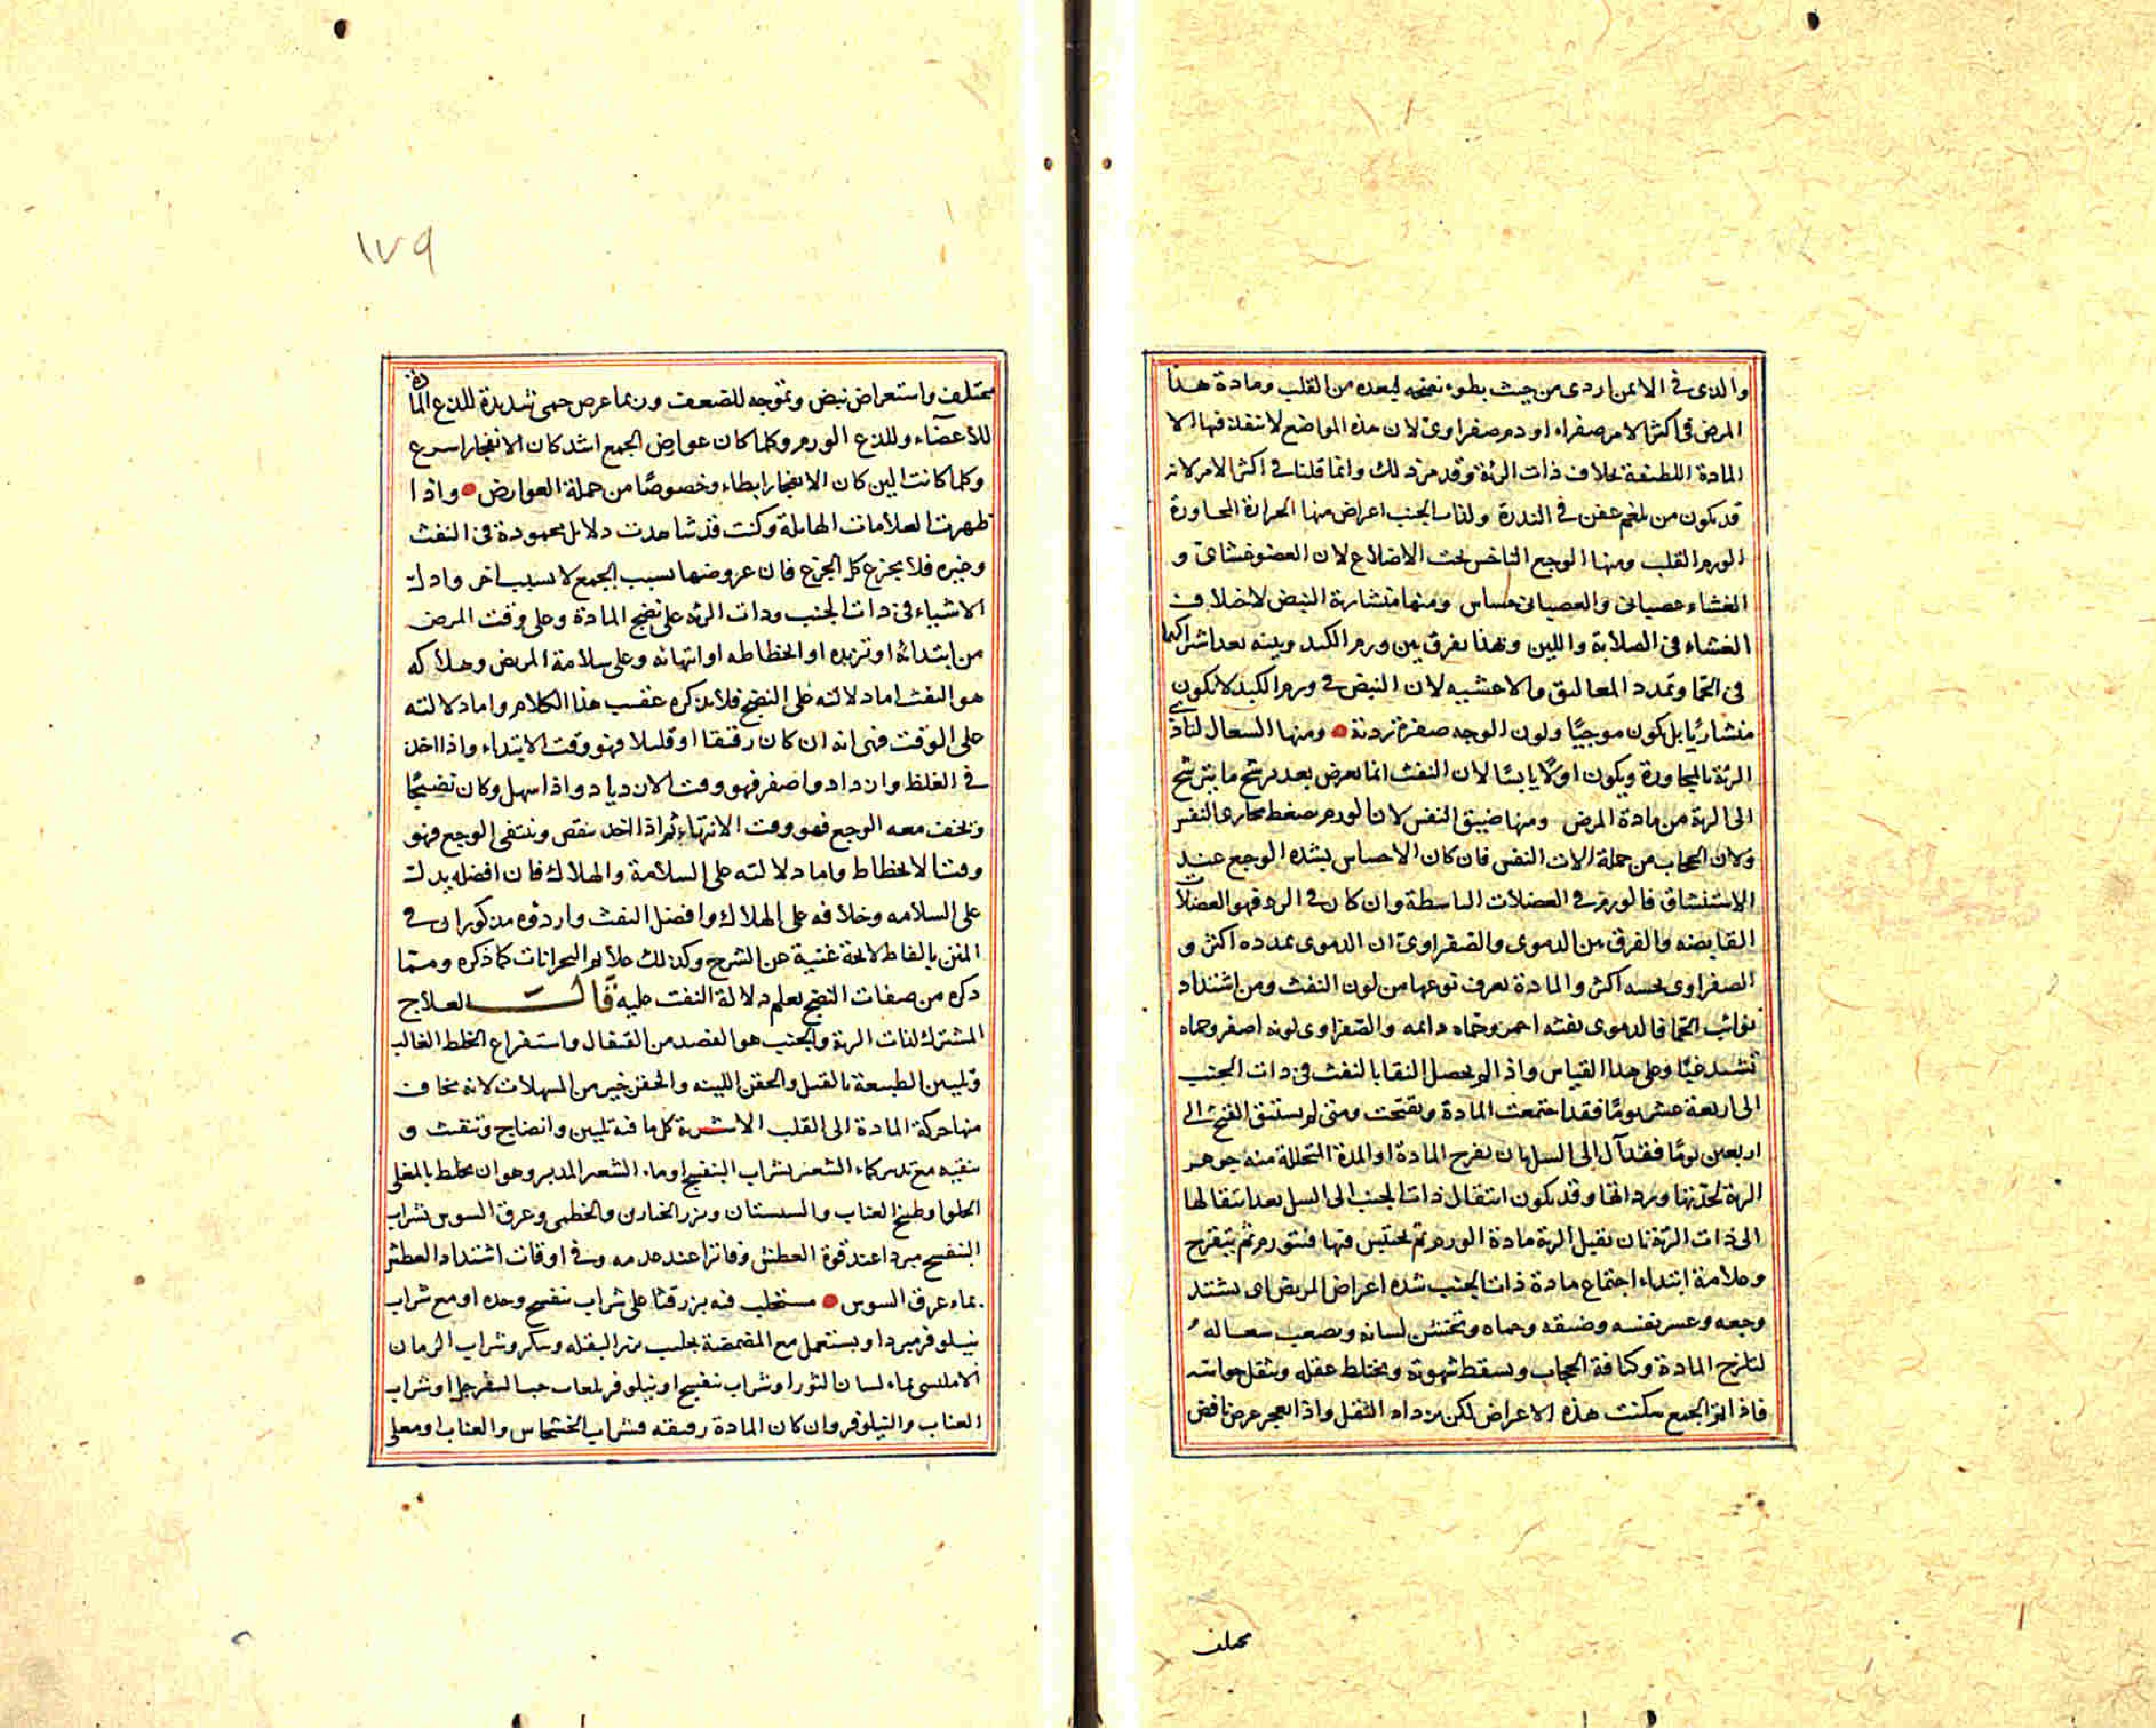 والذى فى الايمن اردى من حيث بطوء نضجه لبعده من القلب ومادة هذا
المرض فى اكثر الامر صفراء او دم صفراوى لان هذه المواضع لا تنفذ فيها الا
المادة اللطيفة بخلاف ذات الرئة وقد مر ذلك وانما قلنا فى اكثر الامر لانه
قد يكون من بلغم عفن فى الندرة ولذات الجنب اعراض منها الحرارة لمجاورة
الورم القلب ومنها الوجع الناخس تحت الاضلاع لان العضو غشاى و
الغشاء عصبانى والعصبانى حساس ومنها منشارية النبض لاختلاف
الغشاء فى الصلابة واللين وبهذا يفرق بين ورم الكبد وبينه بعد اشتراكهما
فى الحمى وتمدد المعاليق والاغشيه لان النبض فى ورم الكبد لا يكون
منشاريا بل يكون موجيًا ولون الوجه صفرة ردية ومنها السعال لتاذى
الرئة بالمجاورة ويكون اولا يابسًا لان النفث انما يعرض بعد ترشح ما يترشح
الى الرية من مادة المرض ومنها ضيق النفس لان الورم يضغط مجارى النفس
ولان الحجاب من جملة الات النفس فان كان الاحساس بشده الوجع عند
الاستنشاق فالورم فى العضلات الباسطة وان كان فى الرد فهو العضلات
القابضه والفرق بين الدموى والصفراوى ان الدموى تمدده اكثر و
الصفراوى نخسه اكثر والمادة يعرف نوعها من لون النفث ومن اشتداد
نوائب الحمى فالدموى نفثه احمر وحماه دائمه والصفراوى لونه اصفر وحماه
تشتد غبًا وعلى هذا القياس واذا لم يحصل النقا بالنفث فى ذات الجنب
الى اربعة عشر يومًا فقد اجتمعت المادة وتقيحت ومتى لم يستنق القيح الى
اربعين يومًا فقد آل الى السل بان يقرح المادة او المدة المتحللة منه جوهر
الرية لحدتها ورداتها وقد يكون انتقال ذات الجنب الى السل بعد انتقالها
الى ذات الرئة بان تقبل الرية مادة الورم ثم تحتبس فيها فتتورم ثم يتقرح
وعلامة ابتداء اجتماع مادة ذات الجنب شده اعراض المريض اى يشتد
وجعه وعسر نفسه وضيقه وحماه وتخشن لسانه ويصعب سعاله
لتلزج المادة وكثافة الحجاب وتسقط شهوته ويختلط عقله وتثقل حواسه
فاذا تم الجمع سكنت هذه الاعراض لكن يزداد الثقل واذا انفجر عرض نافض
مختلف
١٧٩
مختلف واستعراض نبض وتموجه للضعف وربما عرض حمى شديدة للذع المادة
للاعضاء وللذع الورم وكلما كان عوارض الجمع اشد كان الانفجار اسرع
وكلما كانت الين كان الانفجار ابطاء وخصوصًا من جملة العوارض واذا
ظهرت العلامات الهايلة وكنت قد شاهدت دلايل محمودة فى النفث
وغيره فلا تجزع كل الجزع فان عروضها بسبب الجمع لا بسبب اخر وادل
الاشياء فى ذات الجنب وذات الرئه على نضج المادة وعلى وقت المرض
من ابتدائه او تزيده او انحطاطه او انتهائه وعلى سلامة المريض وهلاكه
هو النفث اما دلالته على النضج فلما يذكره عقيب هذا الكلام واما دلالته
على الوقت فهى انه ان كان رقيقا او قليلا فهو وقت الابتداء واذا اخذ
فى الغلظ وازداد واصفر فهو وقت الازدياد واذا سهل وكان نضيجًا
ويخف معه الوجع فهو وقت الانتهاء ثم اذا اخذ ينقص وينتفى الوجع فهو
وقت الانحطاط واما دلالته على السلامة والهلاك فان افضله يدل
على السلامه وخلافه على الهلاك وافضل النفث واردؤه مذكوران فى
المتن بالفاظ لايحة غنية عن الشرح وكذلك علائم البحرانات كما ذكره ومما
ذكره من صفات النضج يعلم دلالة النفث عليه قالـــت العلاج
المشترك لذات الرية والجنب هو الفصد من القيفال واستفراغ الخلط الغالب
وتليين الطبيعة بالفتل والحقن اللينه والحقن خير من المسهلات لانه يخاف
منها حركة المادة الى القلب الاشربة كل ما فيه تليين وانضاج وتنفث و
تنقيه مع تبريد كماء الشعير بشراب البنفسج او ماء الشعير المدبر وهو ان يخلط بالمغلى
الحلو او طبيخ العناب والسبستان وبزر الخبازى والخطمى وعرق السوس بشراب
البنفسج مبردا عند قوة العطش وفاترا عند عدمه وفى اوقات اشتداد العطش
بماء عرق السوس مستحلب فيه بزر قثا على شراب بنفسج وحده او مع شراب
نيلوفر مبردا ويستعمل مع المضمضة بحليب بزر البقله وسكر وشراب الرمان
الامليسى بماء لسان الثور او شراب بنفسج او نيلوفر بلعاب حب السفرجل او شراب
العناب والنيلوفر وان كان المادة رقيقه فشراب الخشخاش والعناب او مغلى